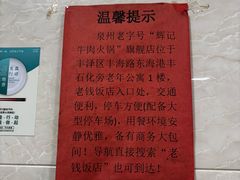 温馨提示
泉州老字号“辉记
牛肉火锅”旗舰店位于
丰泽区丰海路东海港丰
石化旁老年公寓1楼，
老钱饭店入口处，交通
便利，停车方便(配备大
型停车场)，用餐环境安
静优雅，备有商务大包
间！导航直接搜索“老
钱饭店”也可到达！